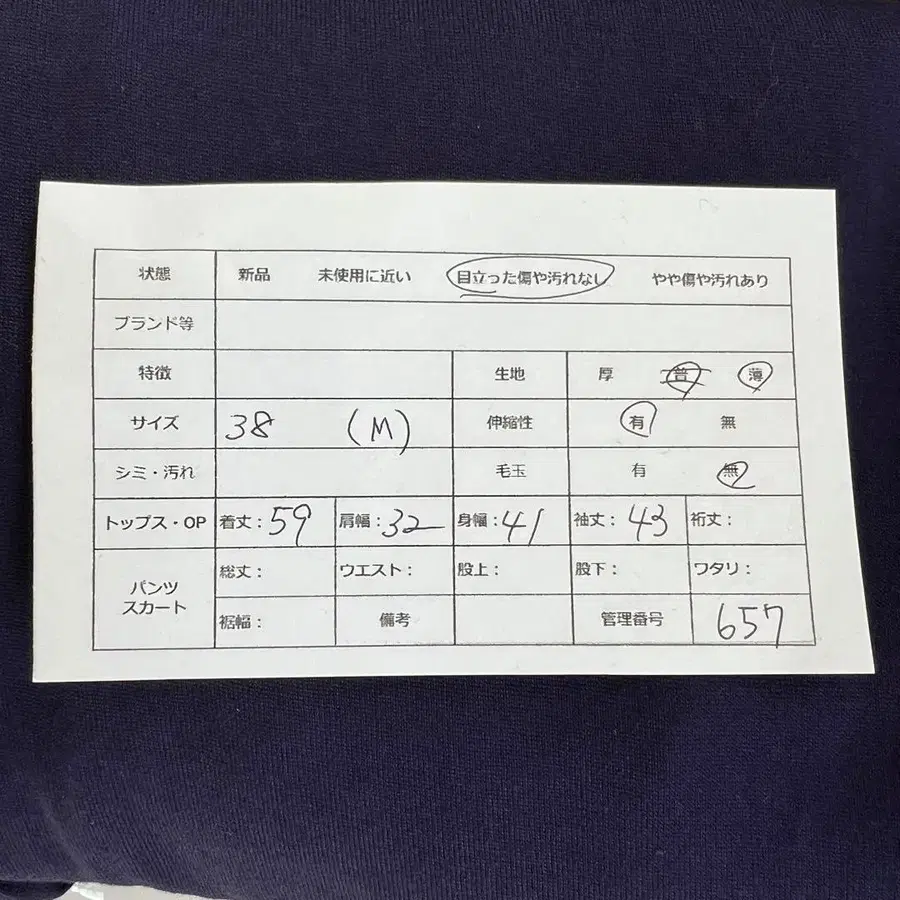 状態 新品 未使用に近い 目立った傷や汚れなし やや傷や汚れあり
ブランド等
特徴 生地 厚 普 薄
サイズ 38 (M) 伸縮性 有 無
シミ・汚れ 毛玉 有 無
トップス・OP 着丈：59 肩幅：32 身幅：41 袖丈：43 裄丈：
パンツ
スカート
総丈： ウエスト： 股上： 股下： ワタリ：
裾幅： 備考 管理番号 657